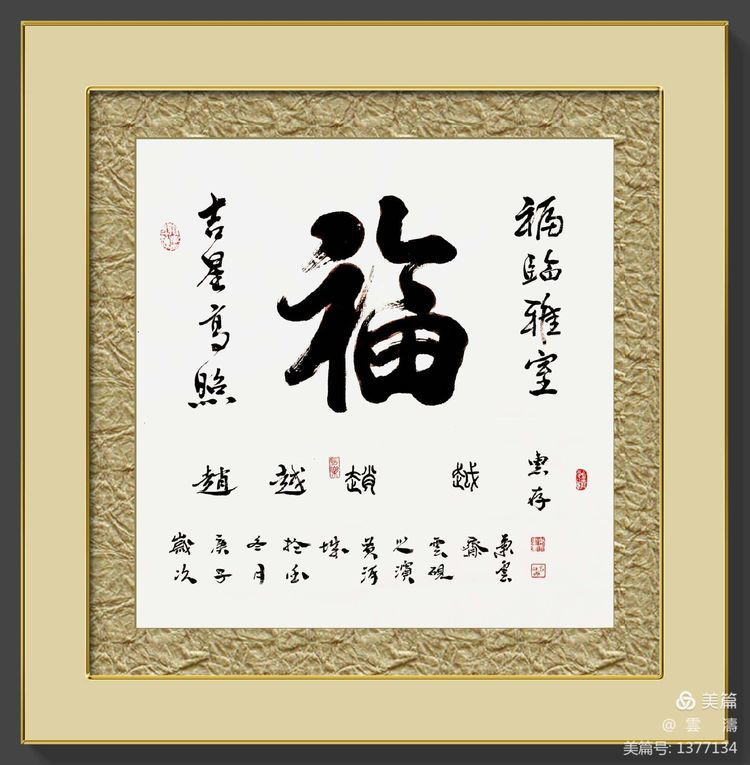 福
福临雅室
吉星高照
趙越
趙越
惠存
歲次
庚子
冬月
於
城
黄河
之濱
雲硯
齋
雲
美篇
@ 雲 濤
美篇号: 1377134